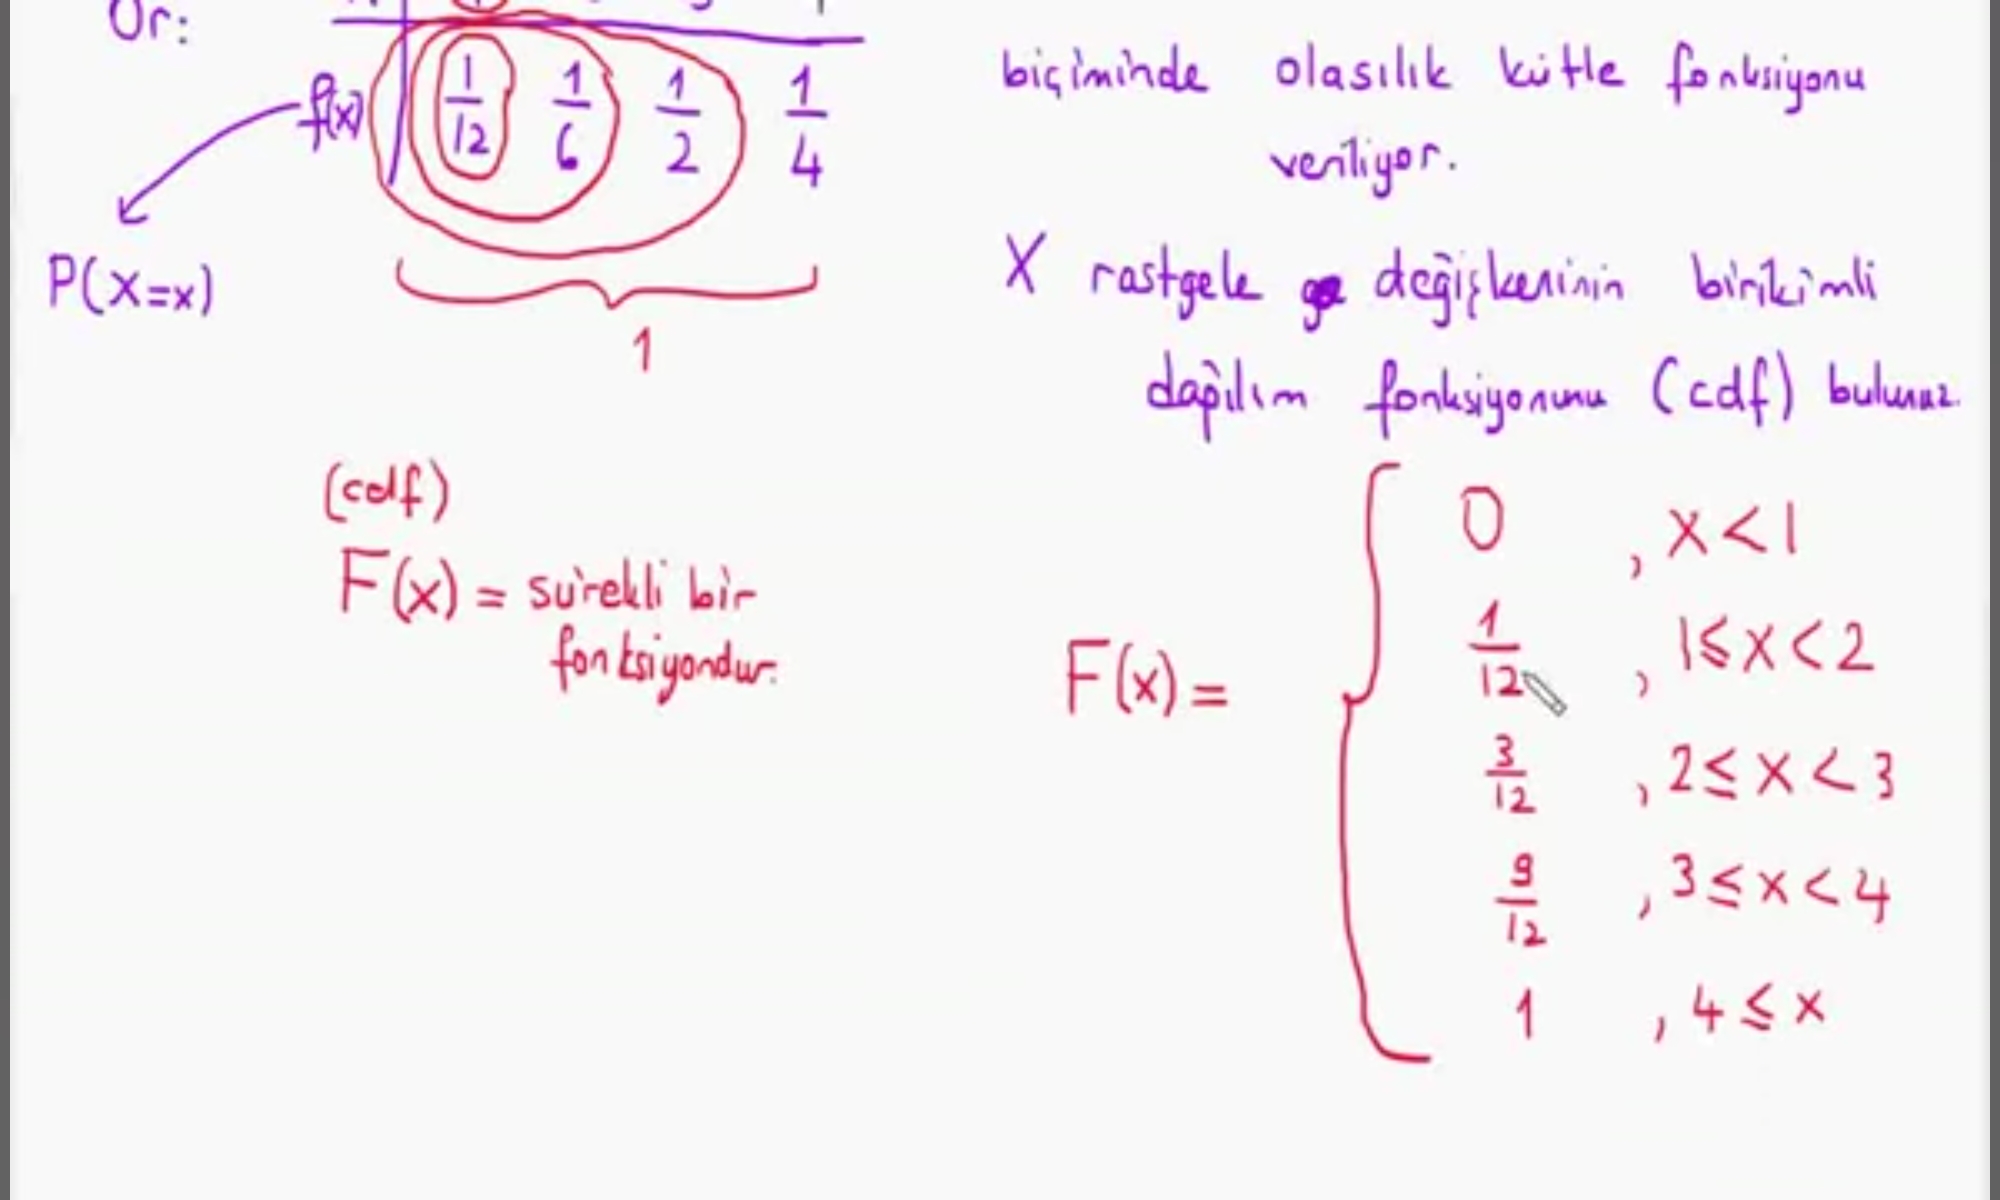 Ör:
f(x) 1/12 1/6 1/2 1/4
P(X=x)
1
biçiminde olasılık kütle fonksiyonu
veriliyor.
X rastgele değişkeninin birikimli
dağılım fonksiyonunu (cdf) bulunuz.
(cdf)
F(x) = sürekli bir
fonksiyondur.
F(x) =
0 , x < 1
1/12 , 1 ≤ x < 2
3/12 , 2 ≤ x < 3
9/12 , 3 ≤ x < 4
1 , 4 ≤ x